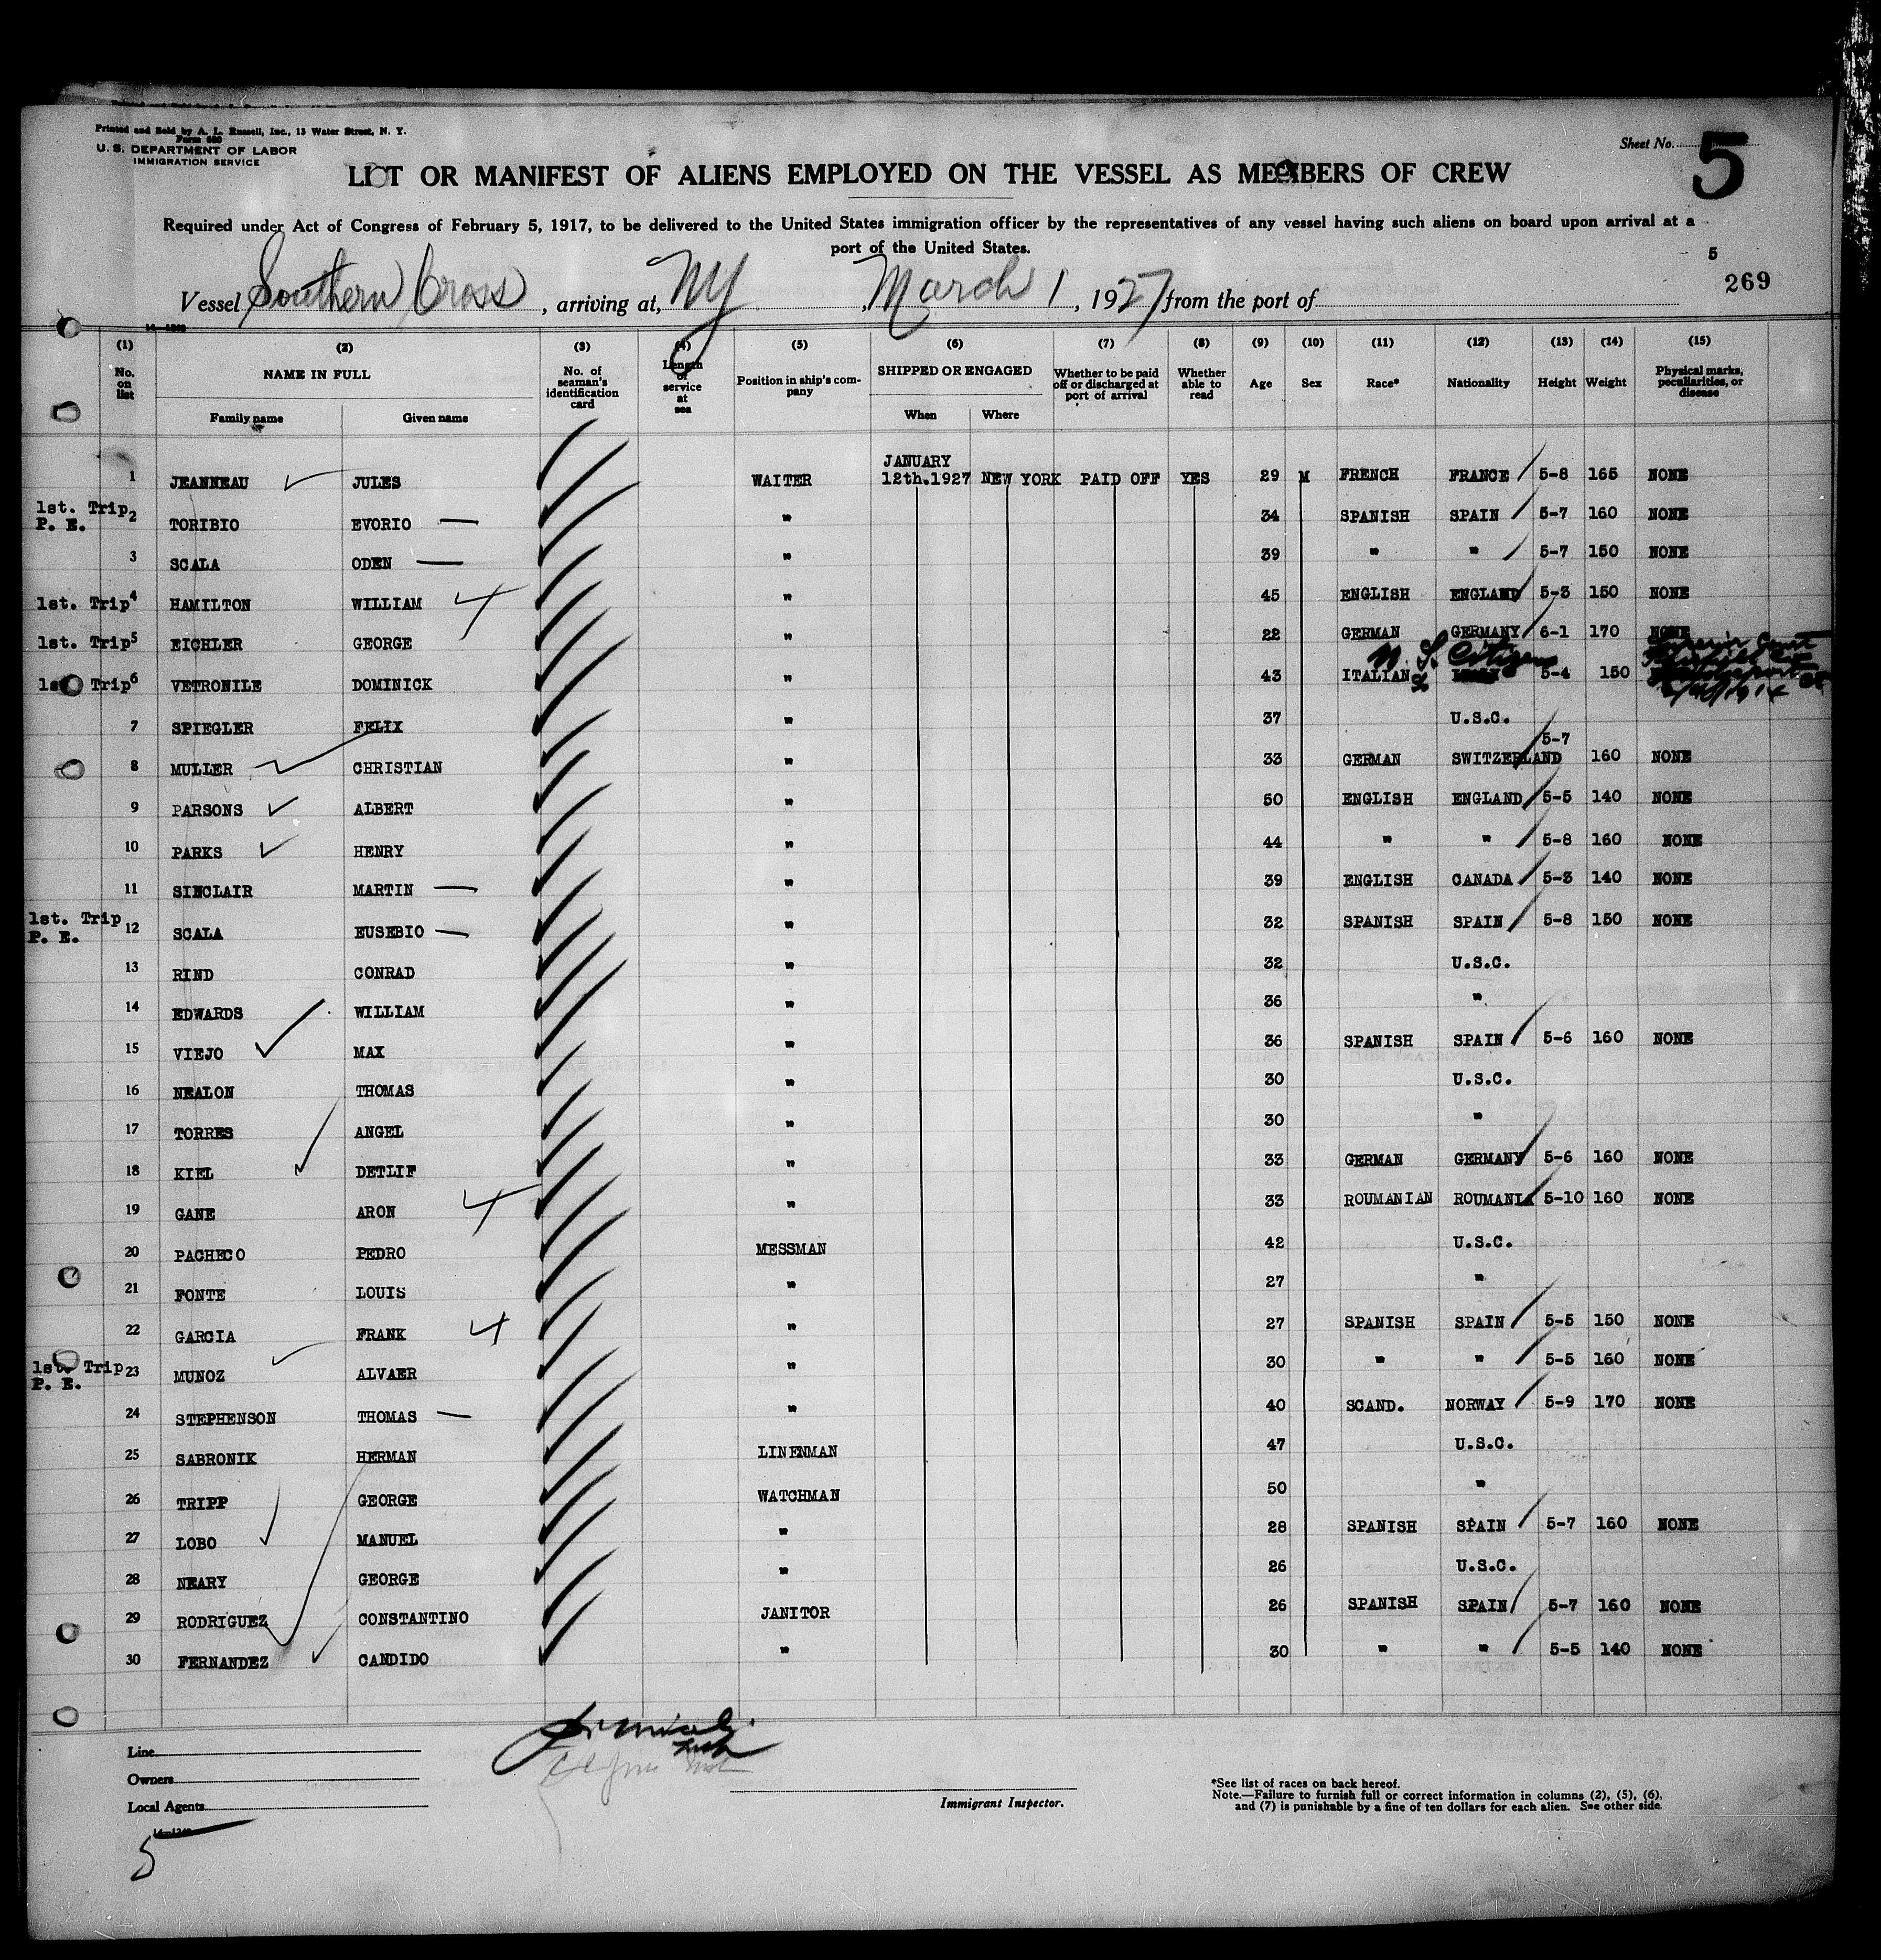 Printed and Sold by A. L. Russell, Inc., 13 Water Street, N. Y.
Form 680
U. S. DEPARTMENT OF LABOR
IMMIGRATION SERVICE
Sheet No. 5
LIST OR MANIFEST OF ALIENS EMPLOYED ON THE VESSEL AS MEMBERS OF CREW
Required under Act of Congress of February 5, 1917, to be delivered to the United States immigration officer by the representatives of any vessel having such aliens on board upon arrival at a
port of the United States.
5
269
Vessel Southern Cross, arriving at, NY, March 1, 1927 from the port of
(1) (2) (3) (4) (5) (6) (7) (8) (9) (10) (11) (12) (13) (14) (15)
No. on list NAME IN FULL No. of seaman's identification card Length of service at sea Position in ship's company SHIPPED OR ENGAGED Whether to be paid off or discharged at port of arrival Whether able to read Age Sex Race* Nationality Height Weight Physical marks, peculiarities, or disease
Family name Given name When Where
1 JEANNEAU JULES WAITER JANUARY 12th.1927 NEW YORK PAID OFF YES 29 M FRENCH FRANCE 5-8 165 NONE
1st. Trip P. E. 2 TORIBIO EVORIO " 34 SPANISH SPAIN 5-7 160 NONE
3 SCALA ODEN " 39 " " 5-7 150 NONE
1st. Trip 4 HAMILTON WILLIAM " 45 ENGLISH ENGLAND 5-3 150 NONE
1st. Trip 5 EICHLER GEORGE " 22 GERMAN GERMANY 6-1 170 NONE
1st. Trip 6 VETRONILE DOMINICK " 43 ITALIAN Citizen 5-4 150
7 SPIEGLER FELIX " 37 U.S.C.
8 MULLER CHRISTIAN " 33 GERMAN SWITZERLAND 5-7 160 NONE
9 PARSONS ALBERT " 50 ENGLISH ENGLAND 5-5 140 NONE
10 PARKS HENRY " 44 " " 5-8 160 NONE
11 SINCLAIR MARTIN " 39 ENGLISH CANADA 5-3 140 NONE
1st. Trip P. E. 12 SCALA EUSEBIO " 32 SPANISH SPAIN 5-8 150 NONE
13 RIND CONRAD " 32 U.S.C.
14 EDWARDS WILLIAM " 36 "
15 VIEJO MAX " 36 SPANISH SPAIN 5-6 160 NONE
16 NEALON THOMAS " 30 U.S.C.
17 TORRES ANGEL " 30 "
18 KIEL DETLIF " 33 GERMAN GERMANY 5-6 160 NONE
19 GANE ARON " 33 ROUMANIAN ROUMANIA 5-10 160 NONE
20 PACHECO PEDRO MESSMAN 42 U.S.C.
21 FONTE LOUIS " 27 "
22 GARCIA FRANK " 27 SPANISH SPAIN 5-5 150 NONE
1st. Trip P. E. 23 MUNOZ ALVAER " 30 " " 5-5 160 NONE
24 STEPHENSON THOMAS " 40 SCAND. NORWAY 5-9 170 NONE
25 SABRONIK HERMAN LINENMAN 47 U.S.C.
26 TRIPP GEORGE WATCHMAN 50 "
27 LOBO MANUEL " 28 SPANISH SPAIN 5-7 160 NONE
28 NEARY GEORGE " 26 U.S.C.
29 RODRIGUEZ CONSTANTINO JANITOR 26 SPANISH SPAIN 5-7 160 NONE
30 FERNANDEZ CANDIDO " 30 " " 5-5 140 NONE
Line
Owners
Local Agents
Immigrant Inspector.
*See list of races on back hereof.
Note.—Failure to furnish full or correct information in columns (2), (5), (6),
and (7) is punishable by a fine of ten dollars for each alien. See other side.
5